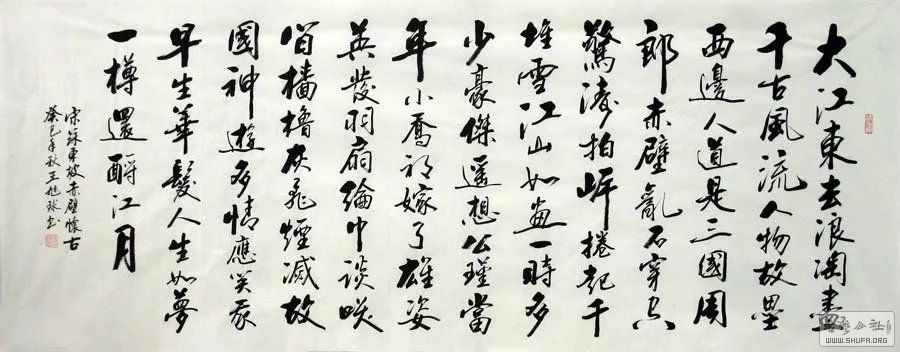 大江東去浪淘盡
千古風流人物故壘
西邊人道是三國周
郎赤壁亂石穿空
驚濤拍岸捲起千
堆雪江山如畫一時多
少豪傑遙想公瑾當
年小喬初嫁了雄姿
英發羽扇綸巾談咲
間檣櫓灰飛煙滅故
國神遊多情應笑我
早生華髮人生如夢
一樽還酹江月
宋蘇東坡赤壁懷古
癸巳年秋王旭球書
WWW.SHUFA.ORG